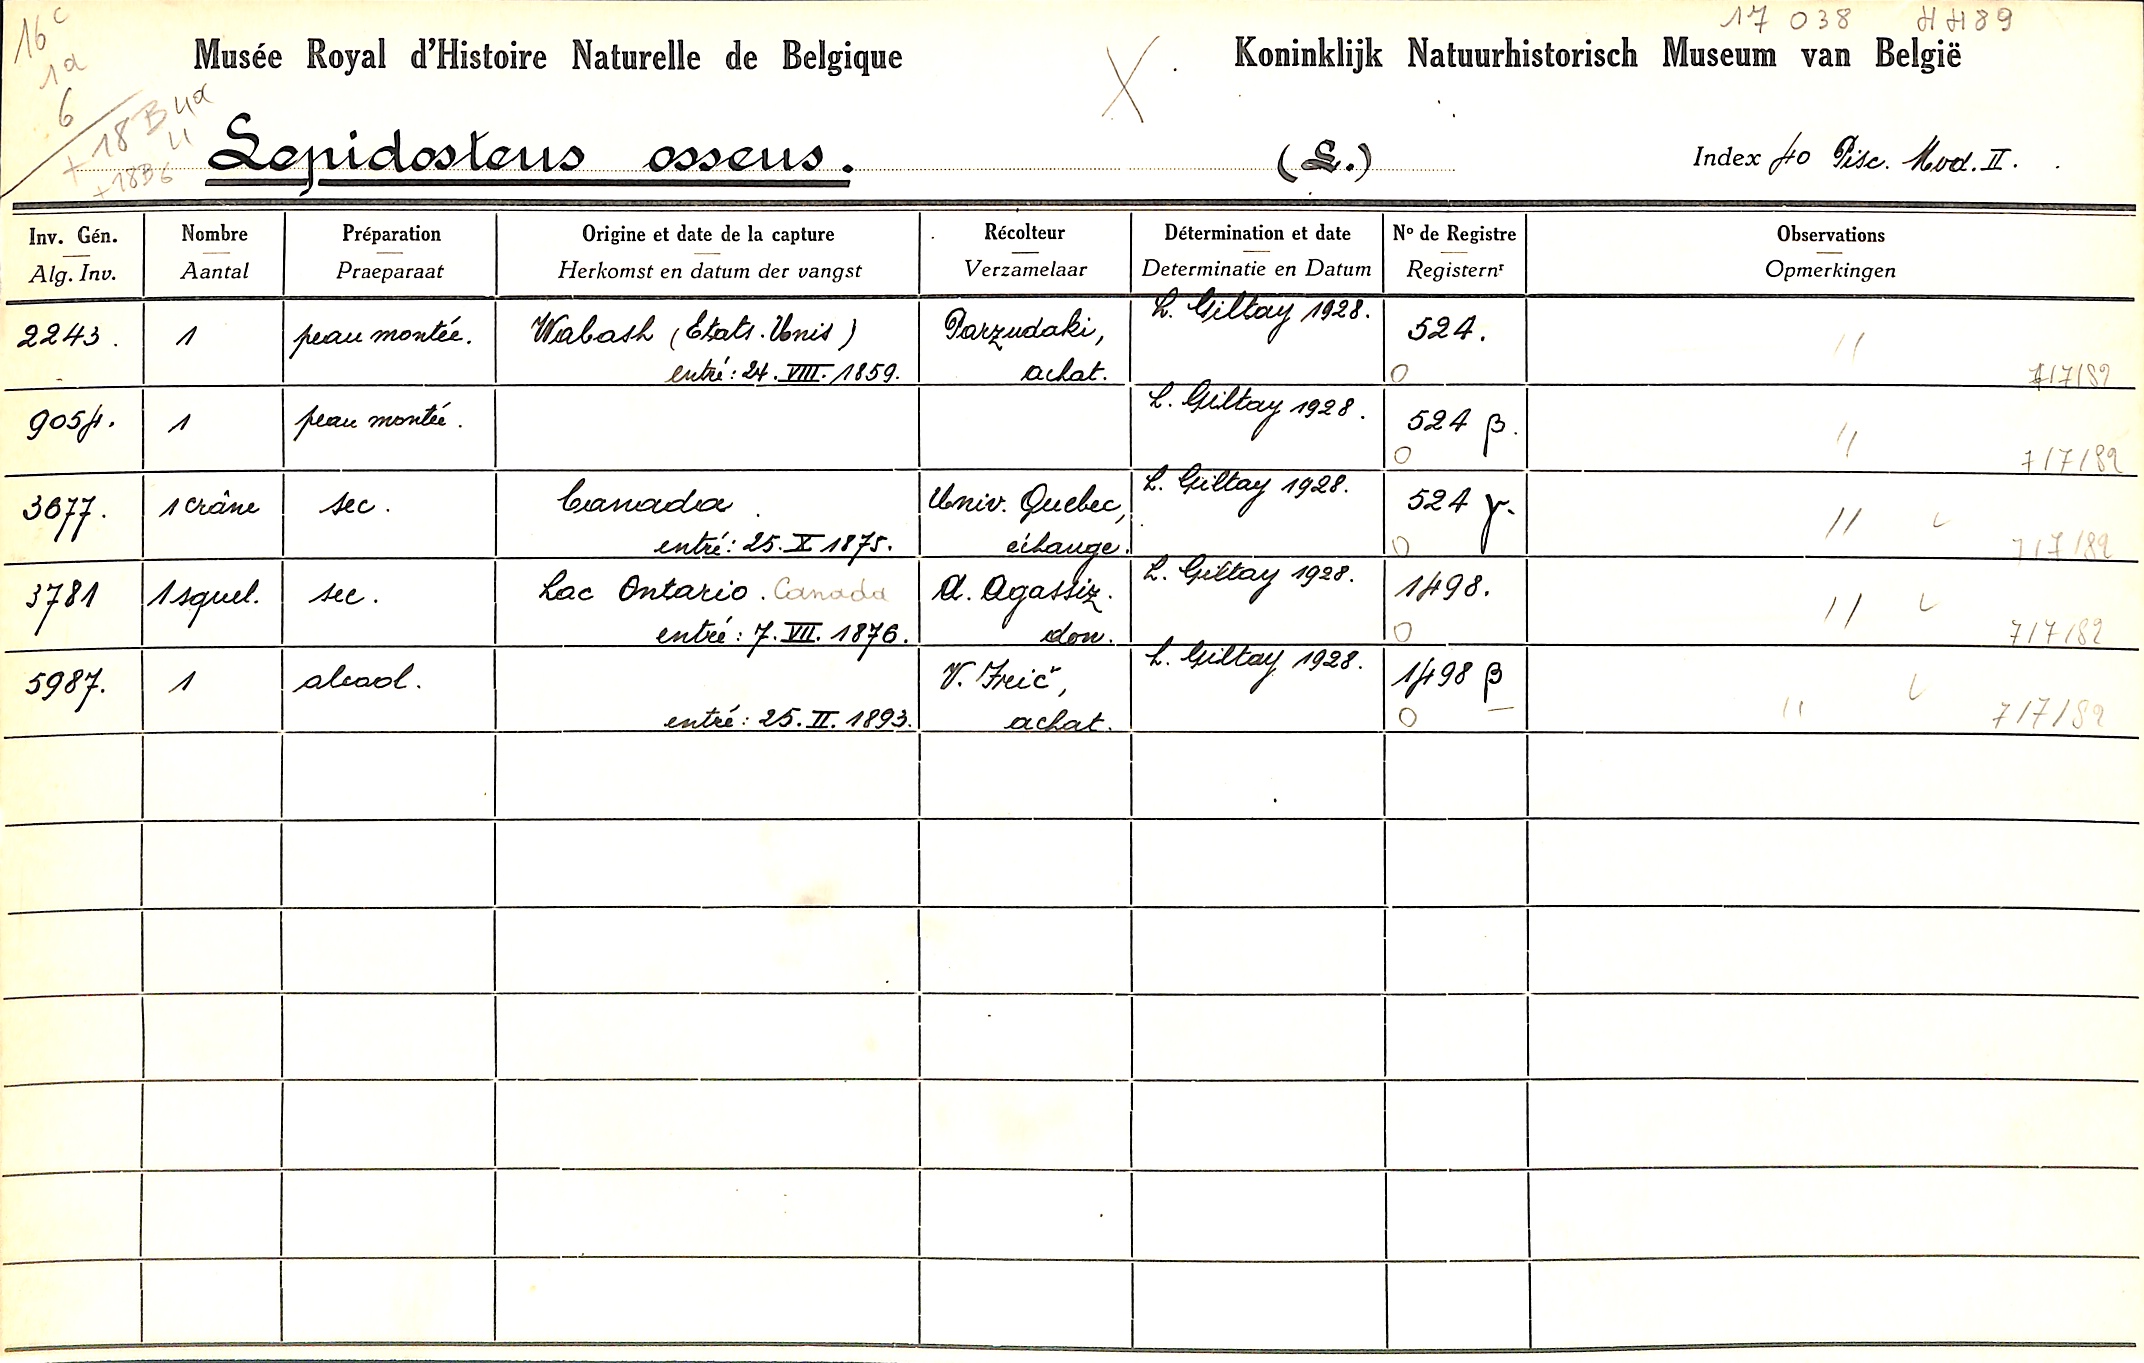 17 038 HH89
16c
1a
6
+ 18 B 4a
+ 18B6
Musée Royal d'Histoire Naturelle de Belgique
Koninklijk Natuurhistorisch Museum van België
Lepidosteus osseus. (L.) Index 40 Pisc. Mod. II.
Inv. Gén. Nombre Préparation Origine et date de la capture Récolteur Détermination et date No de Registre Observations
Alg. Inv. Aantal Praeparaat Herkomst en datum der vangst Verzamelaar Determinatie en Datum Registernr Opmerkingen
2243. 1 peau montée. Wabash (Etats-Unis) Parzudaki, L. Giltay 1928. 524. "
entré: 24. VIII. 1859. achat. 0 7/7/82
9054. 1 peau montée. L. Giltay 1928. 524 β. "
0 7/7/82
3677. 1 crâne sec. Canada Univ. Quebec, L. Giltay 1928. 524 γ. "
entré: 25. X 1875. échange. 0 7/7/82
3781 1 squel. sec. Lac Ontario. Canada A. Agassiz. L. Giltay 1928. 1498. "
entré: 7. VII. 1876. don. 0 7/7/82
5987. 1 alcool. V. Frič, L. Giltay 1928. 1498 β "
entré: 25. II. 1893. achat. 0 7/7/82